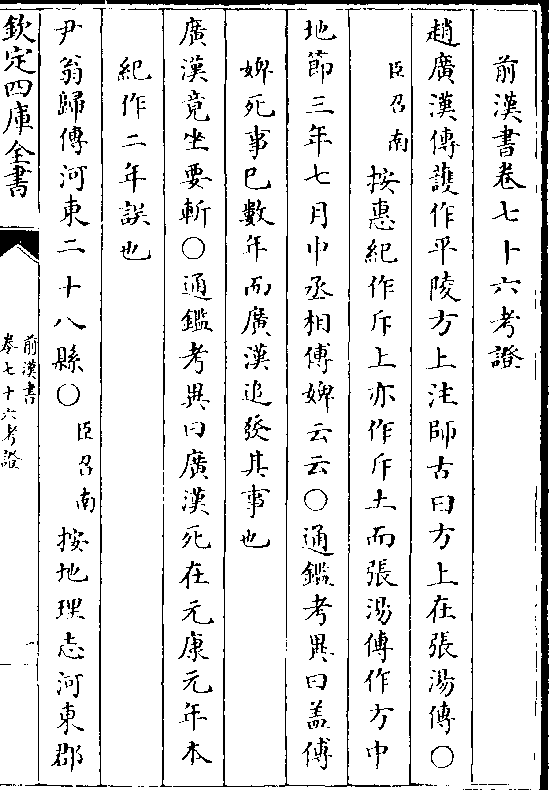 前漢書卷七十六考證
趙廣漢傳護作平陵方上注師古曰方上在張湯傳○
臣召南按惠紀作斥上亦作斥土而張湯傳作方中
地節三年七月中丞相傅婢云云○通鑑考異曰盖傅
婢死事已數年而廣漢追發其事也
廣漢竟坐要斬○通鑑考異曰廣漢死在元康元年本
紀作二年誤也
尹翁歸傳河東二十八縣○臣召南按地理志河東郡
欽定四庫全書
前漢書
卷七十六考證
一